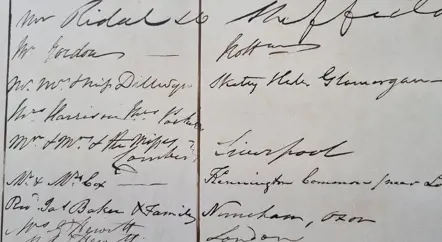 Mr Ridal & Co Sheffield
Mr Gordon
Mr Mrs & Miss Dillwyn Sketty Hall Glamorgan
Mrs Harrison Mrs Parker
Mr & Mrs & the Miss
Liverpool
Mr & Mrs Cox Kennington Common near
Revd Jas Baker & Family Nuneham, Oxon
Mrs Hewitt London
Hewitt